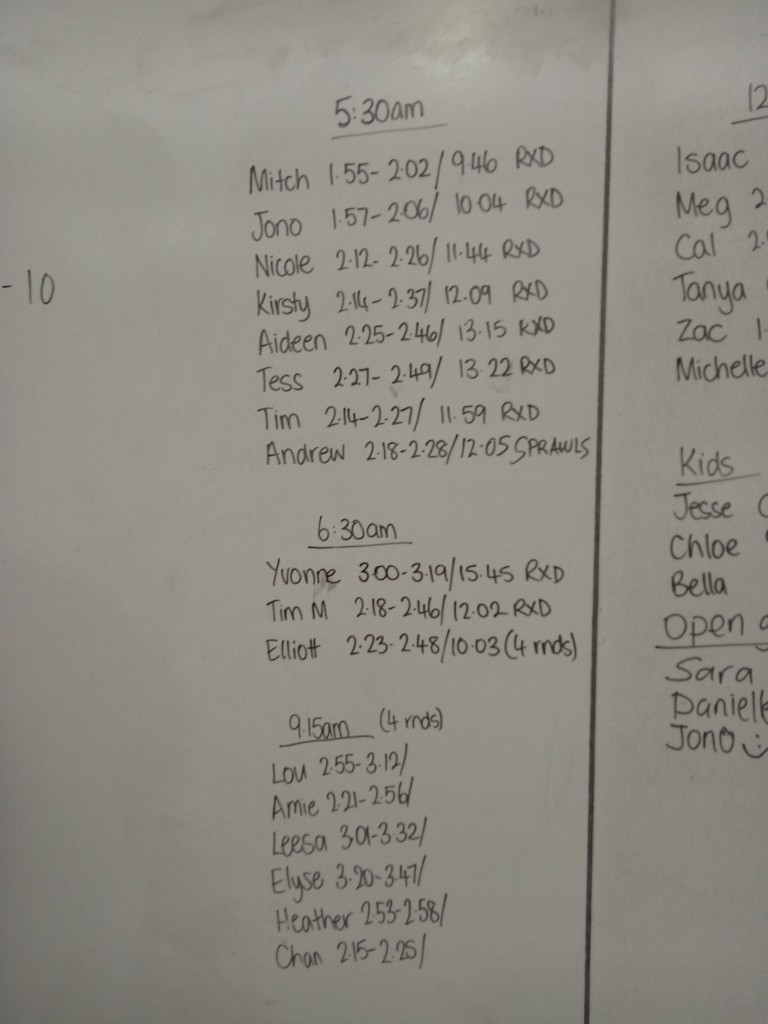 - 10
5:30am
Mitch 1.55- 2.02/ 9.46 RXD
Jono 1.57- 2.06/ 10.04 RXD
Nicole 2.12- 2.26/ 11.44 RXD
Kirsty 2.14- 2.37/ 12.09 RXD
Aideen 2.25-2.46/ 13.15 RXD
Tess 2.27- 2.49/ 13.22 RXD
Tim 2.14-2.27/ 11.59 RXD
Andrew 2.18-2.28/12.05 SPRAWLS
6:30am
Yvonne 3.00-3.19/15.45 RXD
Tim M 2.18-2.46/12.02 RXD
Elliott 2.23-2.48/10.03 (4 rnds)
9.15am (4 rnds)
Lou 2.55-3.12/
Amie 2.21-2.56/
Leesa 3.01-3.32/
Elyse 3.20-3.47/
Heather 2.53-2.58/
Chan 2.15-2.25/
12
Isaac
Meg 2.
Cal 2.
Tanya
Zac 1.
Michelle
Kids
Jesse
Chloe
Bella
Open
Sara
Danielle
Jono :)